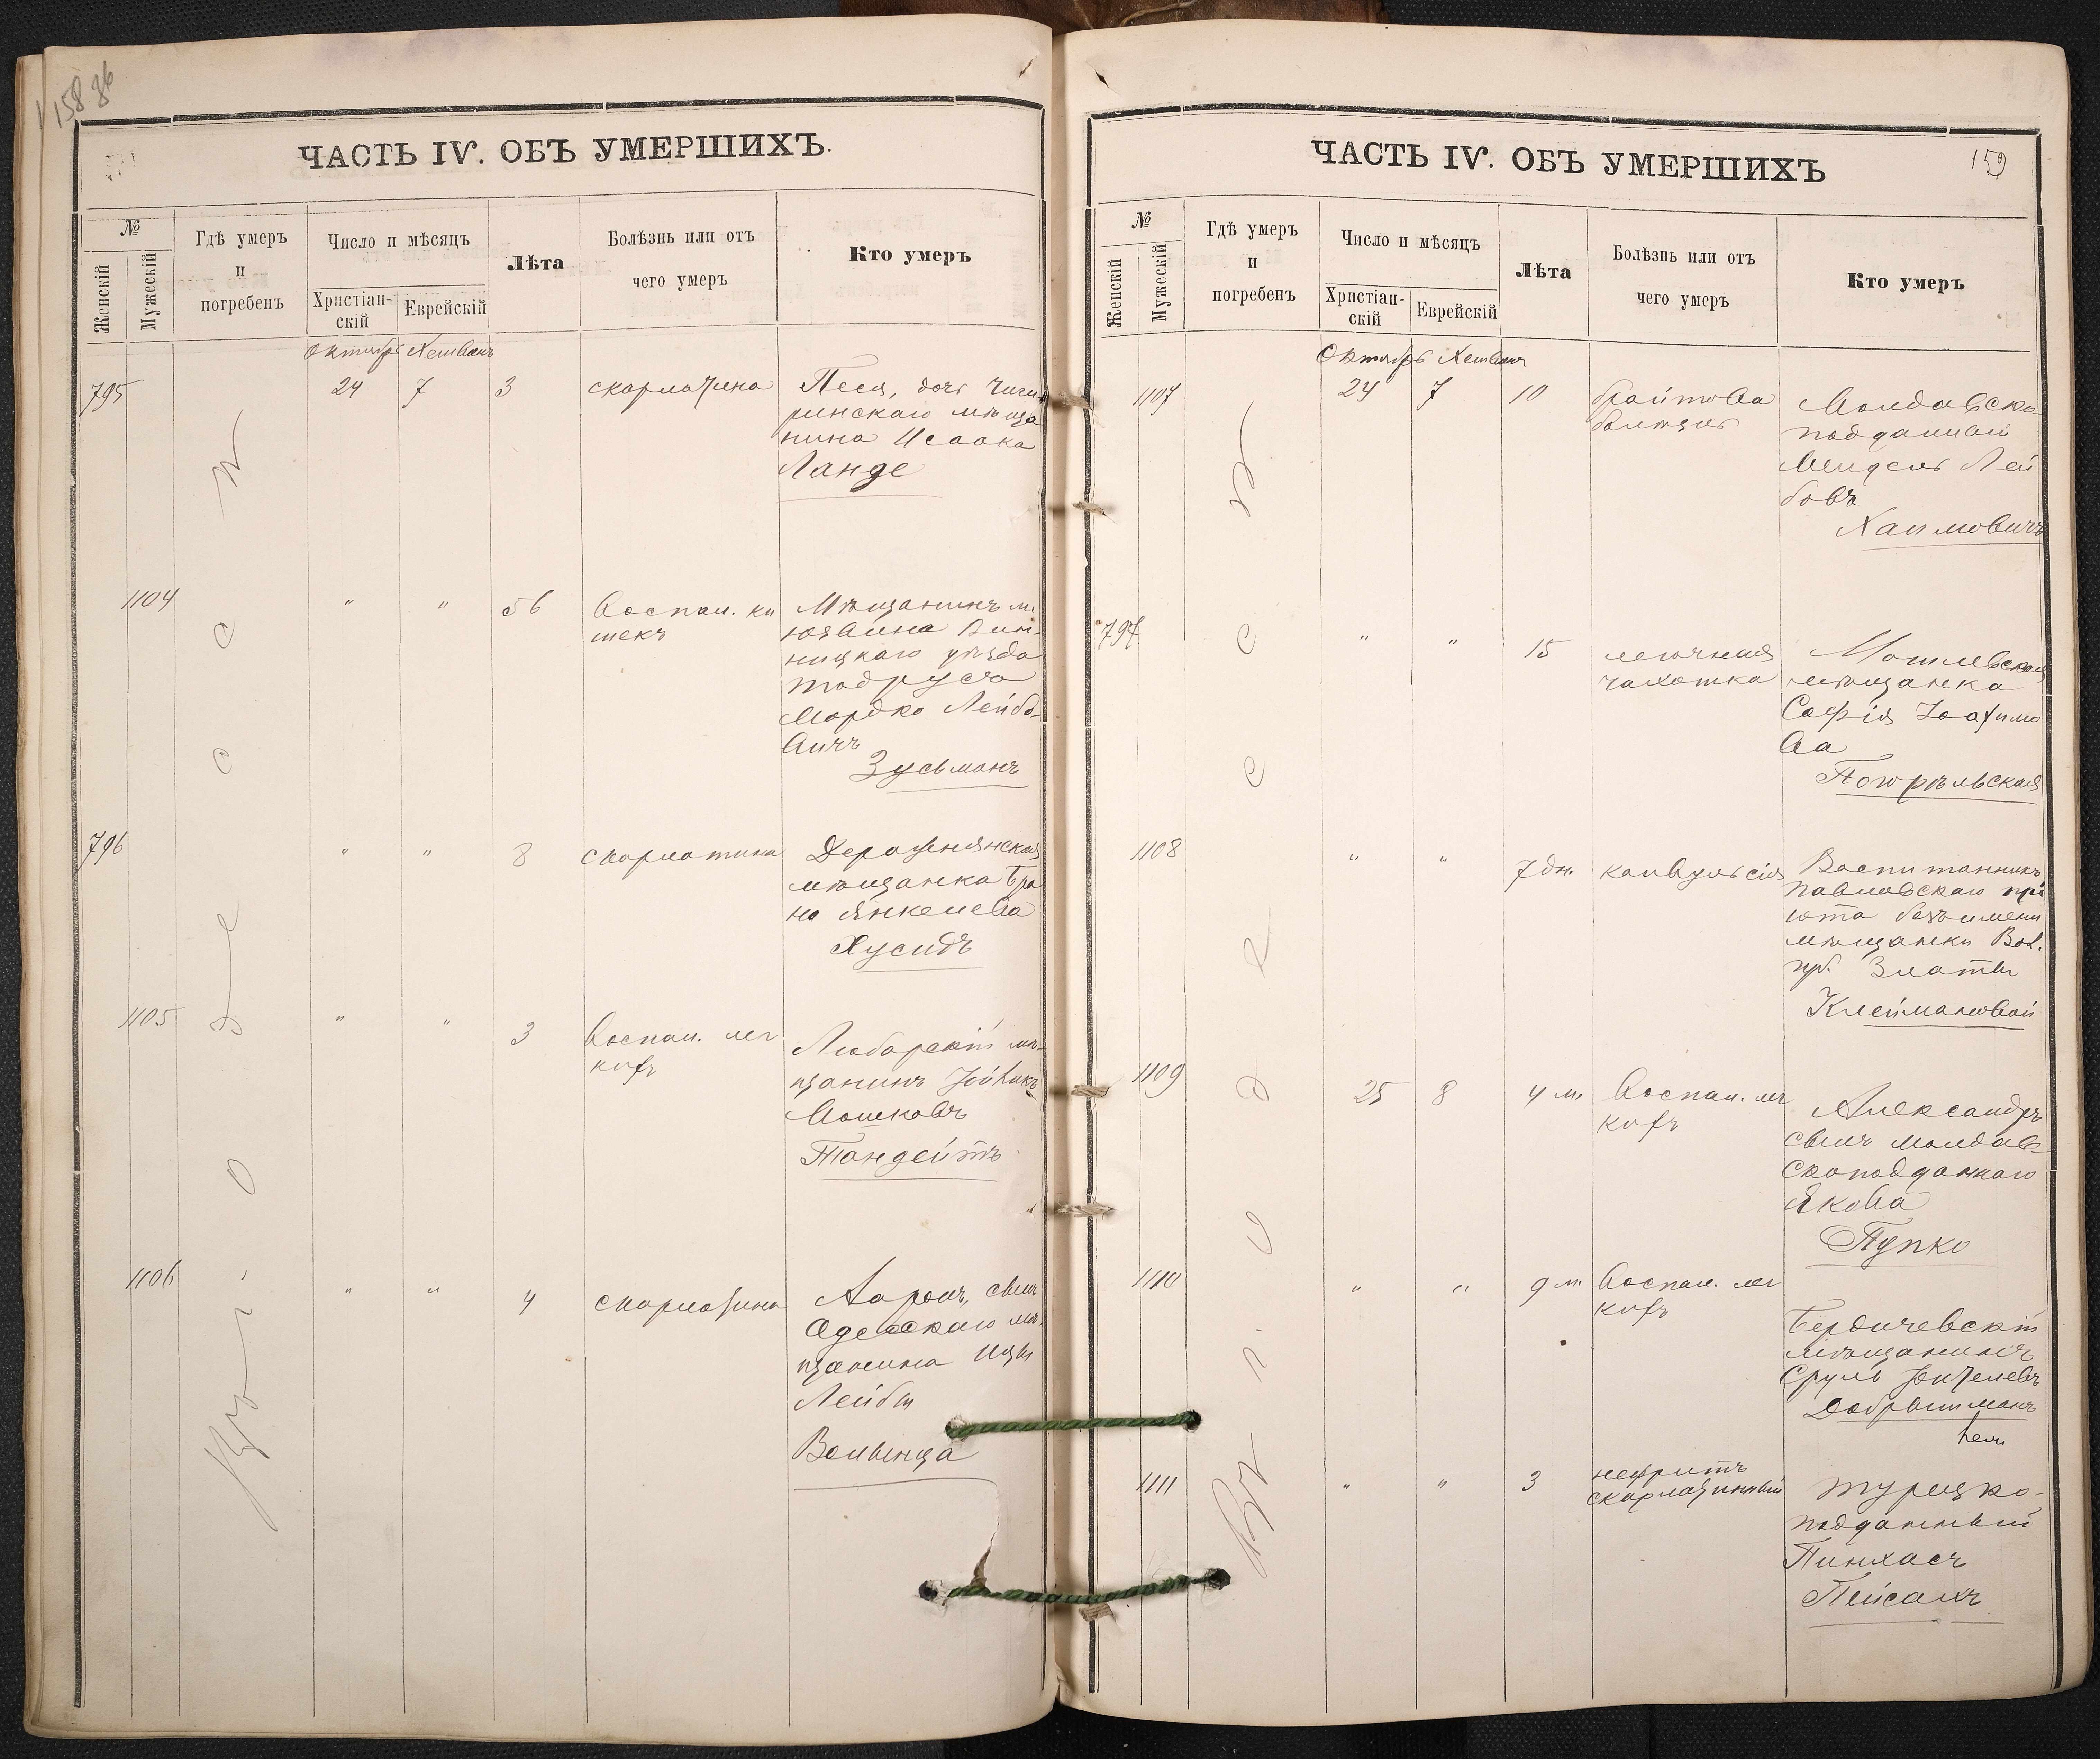 158 об
ЧАСТЬ IV. ОБЪ УМЕРШИХЪ.
№
Женскій
Мужескій
Гдѣ умеръ
и
погребенъ
Число и мѣсяцъ
Христіан-
скій
Еврейскій
Лѣта
Болѣзнь или отъ
чего умеръ
Кто умеръ
Октябрь Хешванъ
795 24 7 3 скарлатина Песя, дочь Чиги-
ринскаго мѣща
нина Исаака
Ланде
1104 " " 56 Воспал. ки
шекъ
Мѣщанинъ м.
Юзвина Вин-
ницкаго уѣзда
Тодрусъ
Мордко Лейбо-
вичъ
Зусьманъ
796 " " 8 скарлатина Деражнянская
мѣщанка Бра
на Янкелева
Хусидъ
1105 " " 3 Воспал. лег
кихъ
Любарскій мѣ-
щанинъ
Мошковъ
Тандейтъ
1106 " " 4 скарлатина Ааронъ, сынъ
Одесскаго мѣ-
щанина Ицы
Лейбы
Вольвица
Въ г. Одессѣ
ЧАСТЬ IV. ОБЪ УМЕРШИХЪ
159
№
Женскій
Мужескій
Гдѣ умеръ
и
погребенъ
Число и мѣсяцъ
Христіан-
скій
Еврейскій
Лѣта
Болѣзнь или отъ
чего умеръ
Кто умеръ
Октябрь Хешванъ
1107 24 7 10 брайтова
болѣзнь
Молдавско-
подданный
Мендель Лей
бовъ
Хаимовичъ
797 " " 15 легочная
чахотка
Могилевская
мѣщанка
Софія Іоахимо
ва
Погорѣльская
1108 " " 7 дн. конвульсія Воспитанникъ
Павловскаго прі
юта безъ имени
мѣщанки Вол.
губ. Златы
Клеймановой
1109 25 8 4 м. Воспал. лег
кихъ
Александръ
сынъ молдав-
скоподданнаго
Якова
Пупко
1110 " " 9 м. Воспал. лег
кихъ
Бердичевскій
мѣщанинъ
Сруль Фихелевъ
Добрышманъ
1111 " " 3 нефритъ
скарлатинный
Турецко-
подданный
Пинхасъ
Пейсахъ
Въ г. Одессѣ